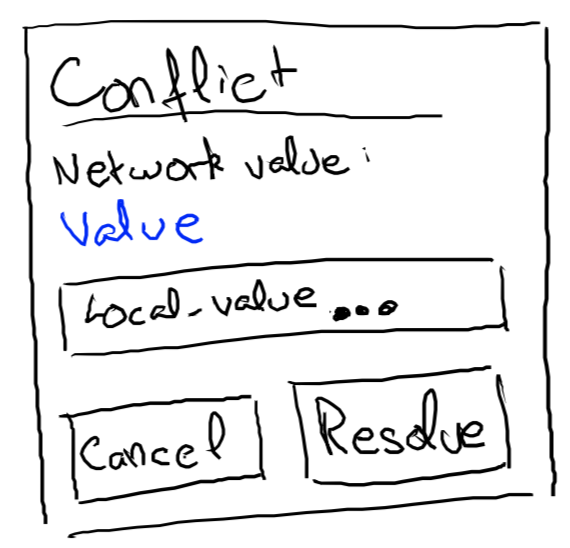 Conflict
Network value:
Value
Local-value...
Cancel Resolve